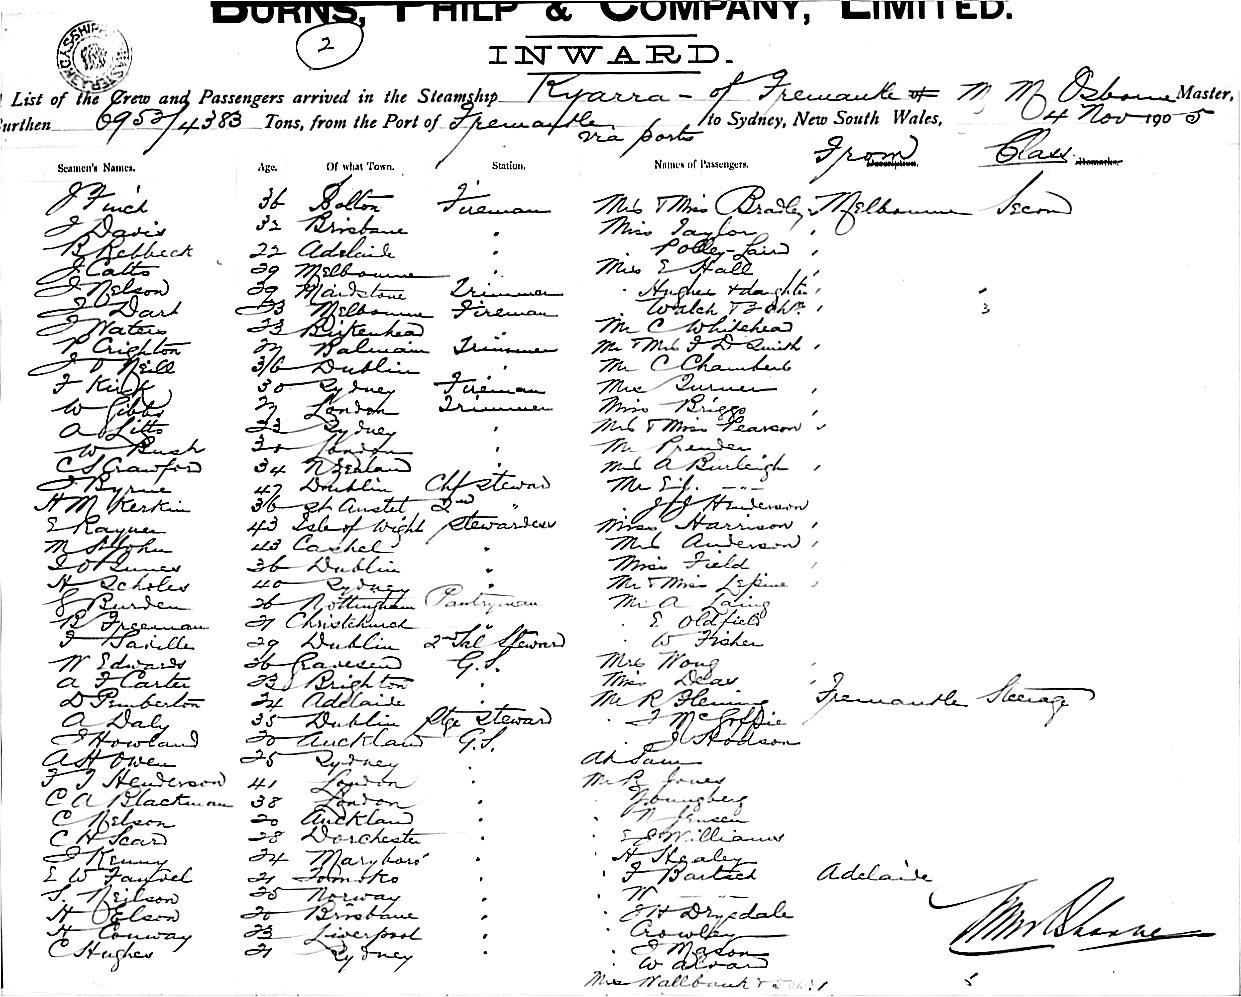 BURNS, PHILP & COMPANY, LIMITED.
2
INWARD.
List of the Crew and Passengers arrived in the Steamship Kyarra - of Fremantle M M Osborne Master,
Burthen 6953/4383 Tons, from the Port of Fremantle via ports to Sydney, New South Wales, 4 Nov 1905
From Class
Seamen's Names. Age. Of what Town. Station. Names of Passengers. Remarks.
J Finch 36 Bolton Fireman Mrs & Miss Bradley Melbourne Second
J Davis 32 Brisbane " Miss Taylor "
B Rebbeck 22 Adelaide " Polley-Laird "
J Catts 29 Melbourne " Miss E Hall "
J Nelson 39 Maidstone Trimmer " Hughes & daughter "
J Dart 33 Melbourne Fireman " Walch & 3 Ch. " 3
J Waters 33 Birkenhead Mr C Whitehead
R Crighton 27 Balmain Trimmer Mr & Mrs F D Smith "
J O'Neill 36 Dublin Mr C Chambers
F Kirk 30 Sydney Fireman Mrs Turner "
W Gibbs 27 London Trimmer Miss Briggs "
A Litts 23 Sydney " Mrs & Miss Pearson "
W Bush 30 London " Mr Prender
C S Crawford 34 N Zealand " Mrs A Burleigh "
J Byrne 47 Dublin Chf Steward Mr E J. -"-
H M Kerkin 36 St Austel 2nd " " J J Henderson
E Rayner 43 Isle of Wight Stewardess Miss Harrison "
M St John 43 Cashel " Mrs Anderson "
I O Innes 36 Dublin " Miss Field "
H Scholes 40 Sydney " Mr & Miss Lepine "
G Burden 26 Nottingham Pantryman Mr A Laing
B Freeman 21 Christchurch " " E Oldfield
F Saville 29 Dublin 2nd Sal Steward " W Fisher
W Edwards 36 Gravesend G.S. Mrs Wong "
A F Carter 33 Brighton " Miss Dias "
D Pemberton 24 Adelaide " Mr R Fleming Fremantle Steerage
A Daly 35 Dublin Stge Steward " J McGoffie
J Howland 20 Auckland G.S. " J Hodson
A H Owen 25 Sydney " Ah Sam
F J Henderson 41 London " Mr R Jones
C A Blackman 38 London " " Youngberg
C Nelson 20 Auckland " " N Jensen
C H Scard 28 Dorchester " " E J Williams
J Kenny 24 Maryboro' " " H Healey
E W 21 " " F Bartsch Adelaide
S. Neilson 25 Norway " " W -"-
H Elson 20 Brisbane " " J H Drysdale
H Conway 23 Liverpool " " Crowley
C Hughes 21 Sydney " " J Mason
" W
Mrs Wallbank &